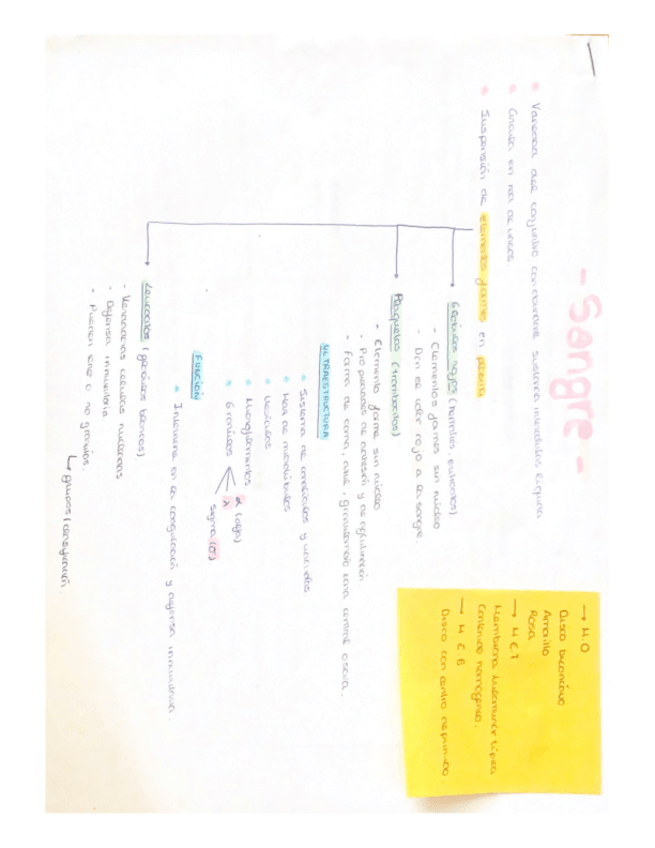 - Sangre -
Variedad del conjuntivo con abundante sustancia intercelular líquida
Circula en red de vasos
Suspensión de elementos formes en plasma
Glóbulos rojos (hematíes, eritrocitos)
- Elementos formes sin núcleo
- Dan el color rojo a la sangre.
Plaquetas (trombocitos)
- Elemento forme sin núcleo
- Propiedades de adhesión y de aglutinación
- Forma de coma, azul, granulomero zona central oscura.
ULTRAESTRUCTURA
Sistema de canalículos y vacuolas
Haz de microtúbulos
Vesículas
Microfilamentos
Gránulos
α (alfa)
λ
sigma (σ)
FUNCIÓN
Interviene en la coagulación y defensa inmunitaria.
Leucocitos (glóbulos blancos)
- Verdaderas células nucleadas
- Defensa inmunitaria
- Pueden tener o no gránulos.
↳ grupos / clasificación.
→ M.O
Disco bicóncavo
Amarillo
Rosa
→ M.E.T
Membrana trilaminar típica
Contenido homogéneo.
→ M.E.B
Disco con centro deprimido.